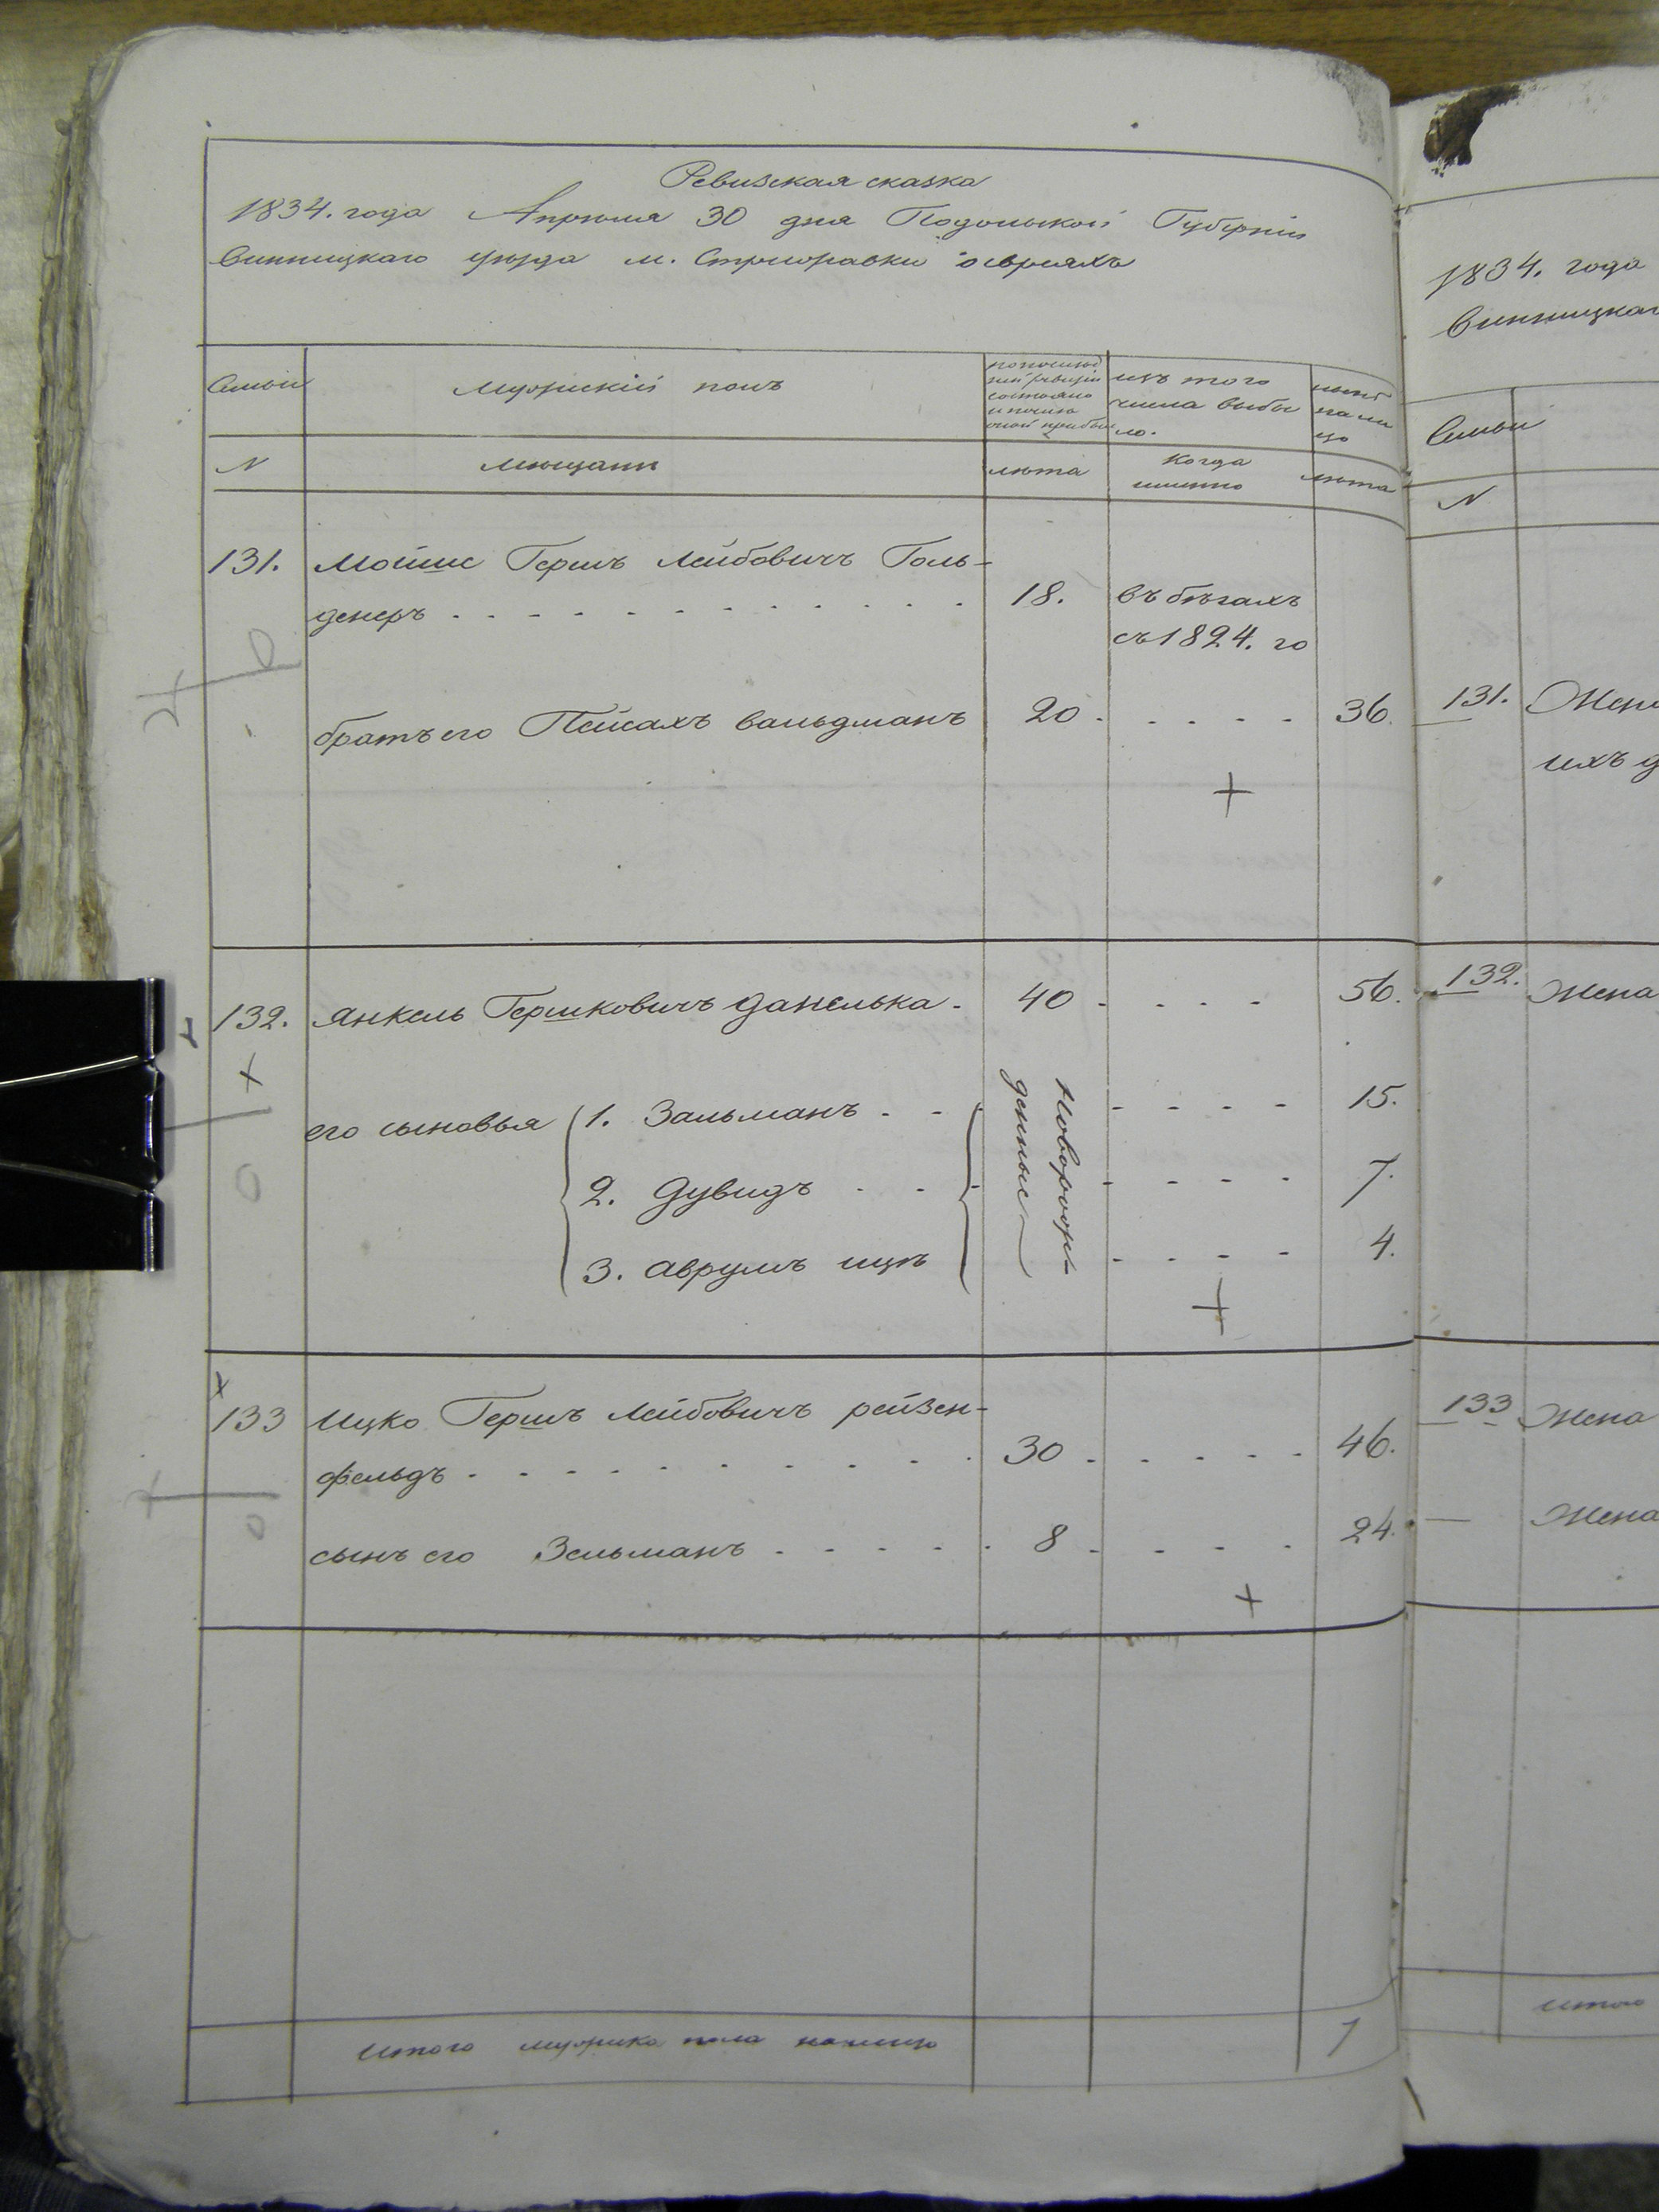 Ревизская сказка
1834. года Апрѣля 30 дня Подольской Губернiи
Винницкаго уѣзда м. Стрижавки о евреяхъ
Семьи
Мужескiй полъ
по послѣд
ней ревизiи
состояло
и после
оной прибы
изъ того
числа выбы
ло.
нынѣ
на ли
цо
N
мѣщане
лѣта
когда
именно
лѣта
131. Мойше Гершъ Лейбовичъ Голь-
денеръ 18. въ бѣгахъ
съ 1824. го
братъ его Пейсахъ Вальдманъ 20 36.
132. Янкель Гершковичъ Данелька 40 56.
его сыновья
1. Зальманъ 15.
2. Дувидъ 7.
3. Аврумъ ицъ 4.
Новорож-
денные
133 Ицко Гершъ Лейбовичъ рейзен-
фельдъ 30 46.
сынъ его Зельманъ 8 24.
Итого мужеска пола налицо 7
1834. года
Винницкаг
Семьи
N
131. Жен
ихъ д
132. Жена
133 Жена
Жена
Итого